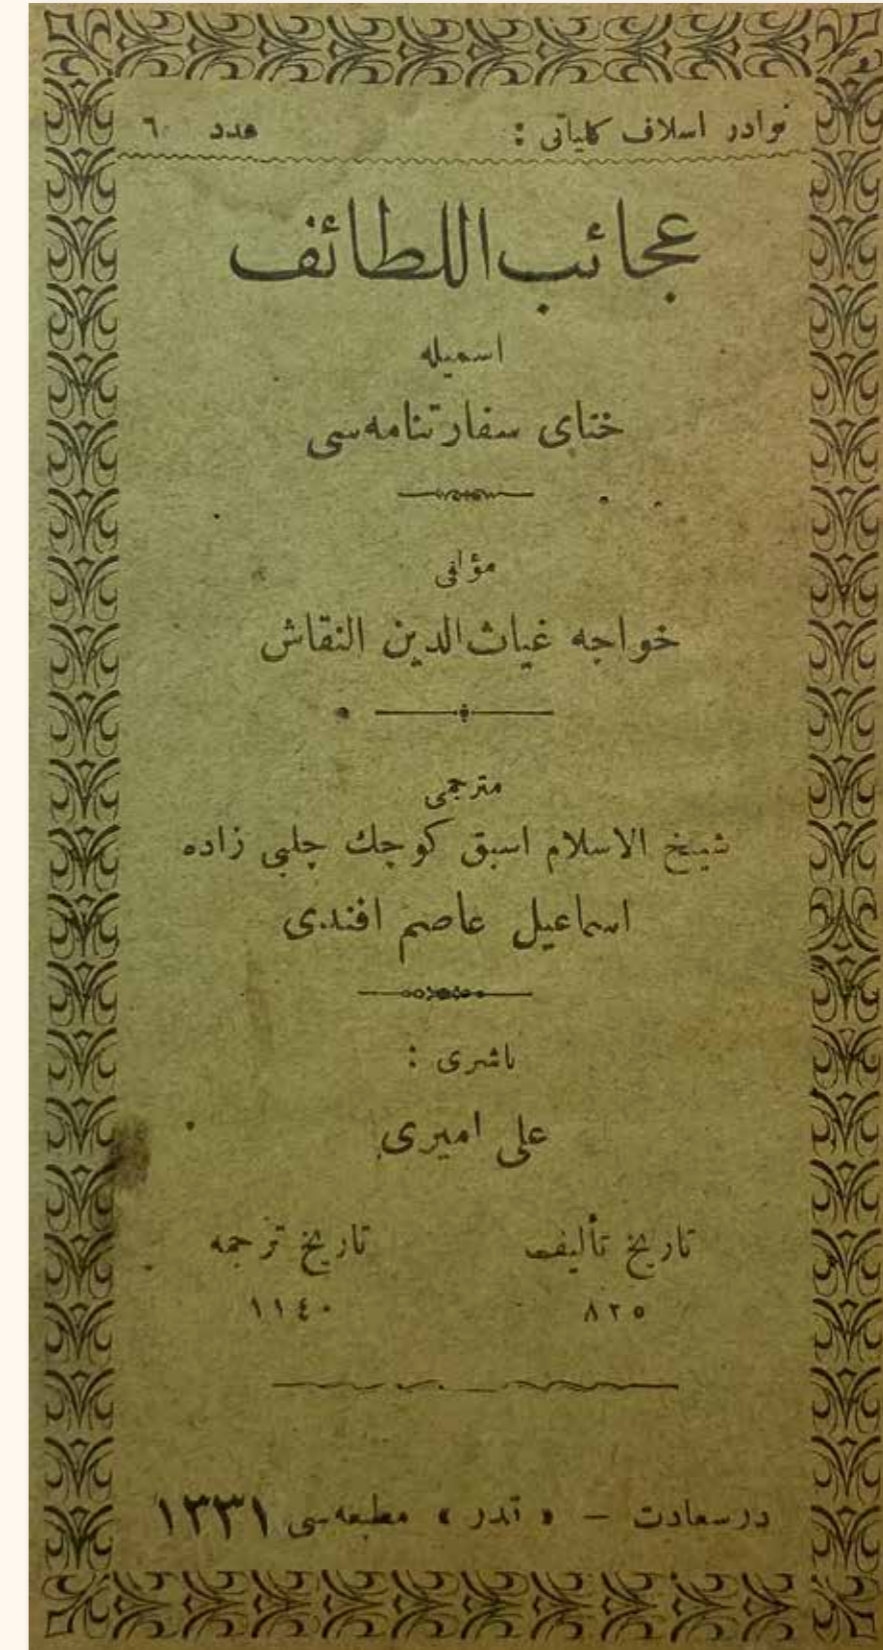 نوادر اسلاف كلياتی : عدد ٦
عجائب اللطائف
اسمیله
ختای سفارتنامه‌سی
مؤلفی
خواجه غیاث‌الدین النقاش
مترجمی
شیخ الاسلام اسبق کوچك چلبی زاده
اسماعیل عاصم افندی
ناشری :
علی امیری
تاریخ تألیف تاریخ ترجمه
٨٢٥ ١١٤٠
درسعادت — « قدر » مطبعه‌سی ١٣٣١